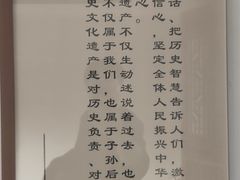 话、把历史智慧告诉人们，激
信心，坚定全体人民振兴中华
心。
遗产不仅生动述说着过去，也
不仅属于我们，也属于子孙后
史文化遗产是对历史负责、对